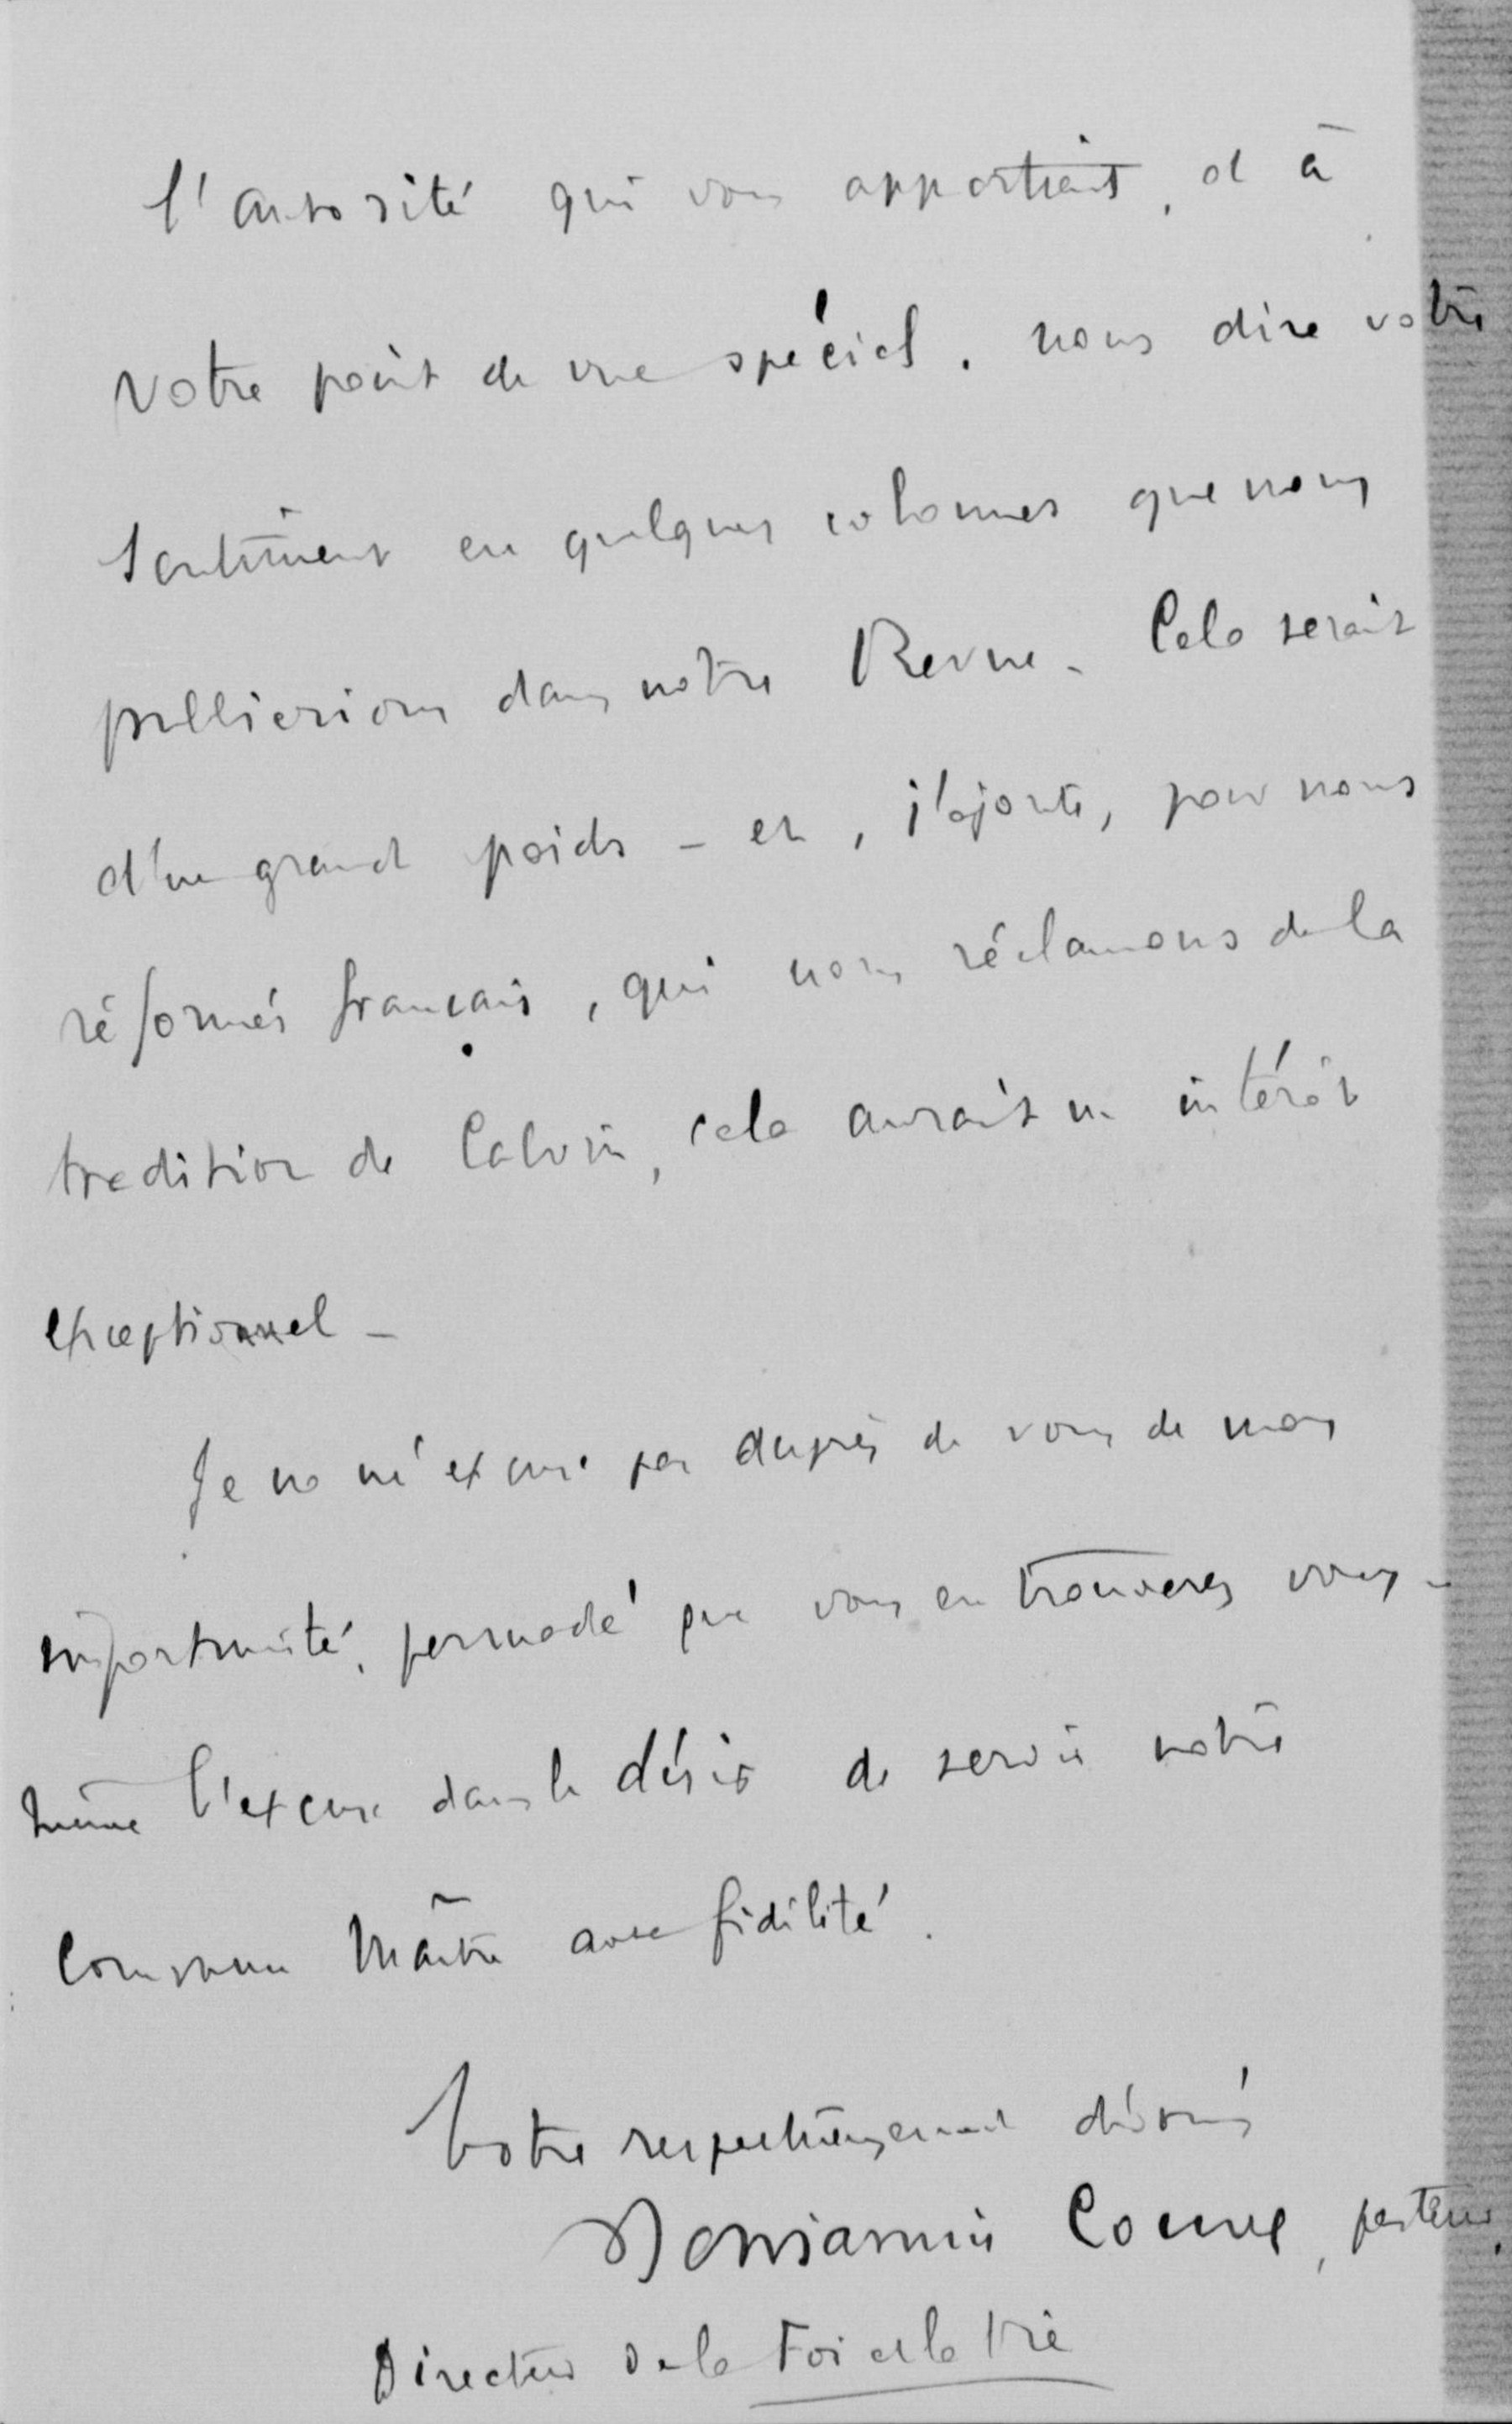 l'autorité qui vous appartient, et à
votre point de vue spécial, nous dire votre
sentiment en quelques colonnes que nous
publierions dans notre Revue – Cela serait
d'un grand poids – et, j'ajoute, pour nous
réformés français, qui nous réclamons de la
tradition de Calvin, cela aurait un intérêt
exceptionnel –
Je ne m'excuse pas auprès de vous de mon
importunité, persuadé que vous en trouverez vous-
même l'excuse dans le désir de servir notre
commun Maître avec fidélité.
Votre respectueusement dévoué
Benjamin Couve, pasteur.
Directeur de la Foi et la Vie